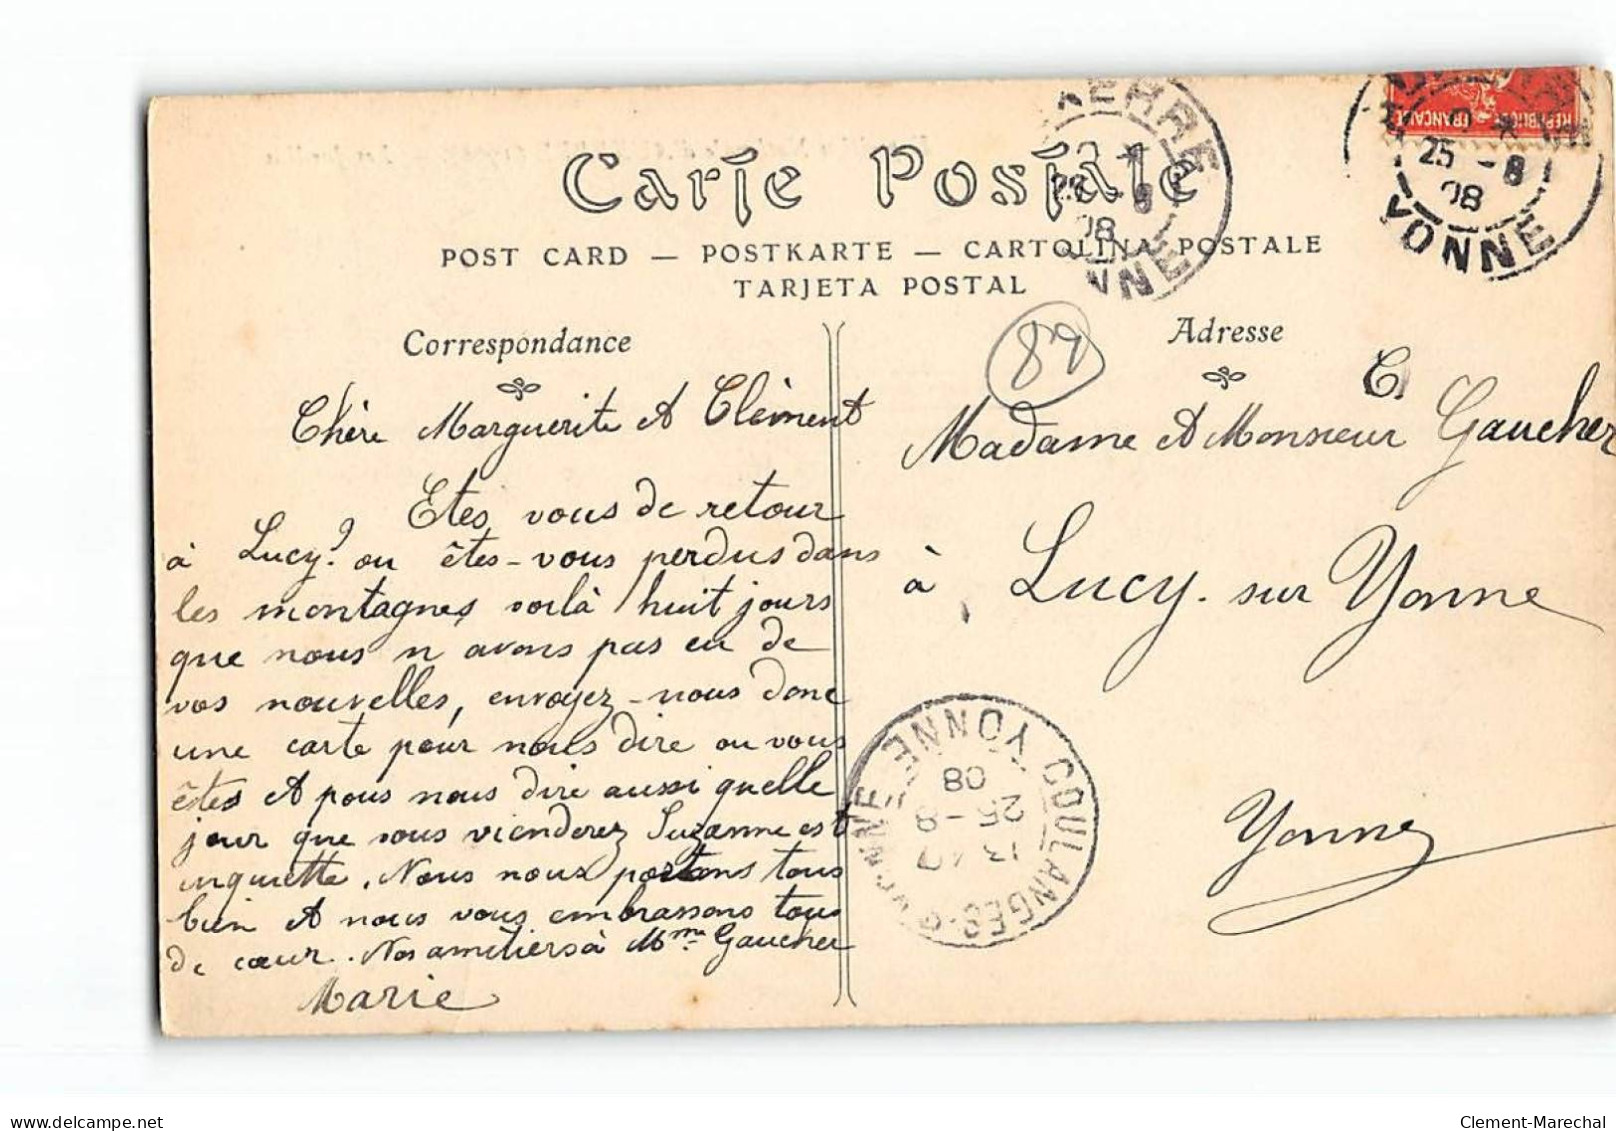 Carte Postale
POST CARD — POSTKARTE — CARTOLINA POSTALE
TARJETA POSTAL
Correspondance
Chère Marguerite et Clèment
Etes vous de retour
à Lucy? ou êtes-vous perdus dans
les montagnes voilà huit jours
que nous n avons pas eu de
vos nouvelles, envoyez-nous donc
une carte pour nous dire ou vous
êtes et pous nous dire aussi quelle
jour que vous vienderez Suzanne est
inquiette. Nous nous portons tous
bien et nous vous embrassons tous
de cœur. Nos amitiers à Mme Gaucher
Marie
Adresse
89
C
Madame et Monsieur Gaucher
à Lucy. sur Yonne
Yonne
REPUBLIQUE FRANÇAISE
25 - 8
08
YONNE
8
08
COULANGES-S-YONNE YONNE
13 40
25 - 8
08
Clement-Marechal